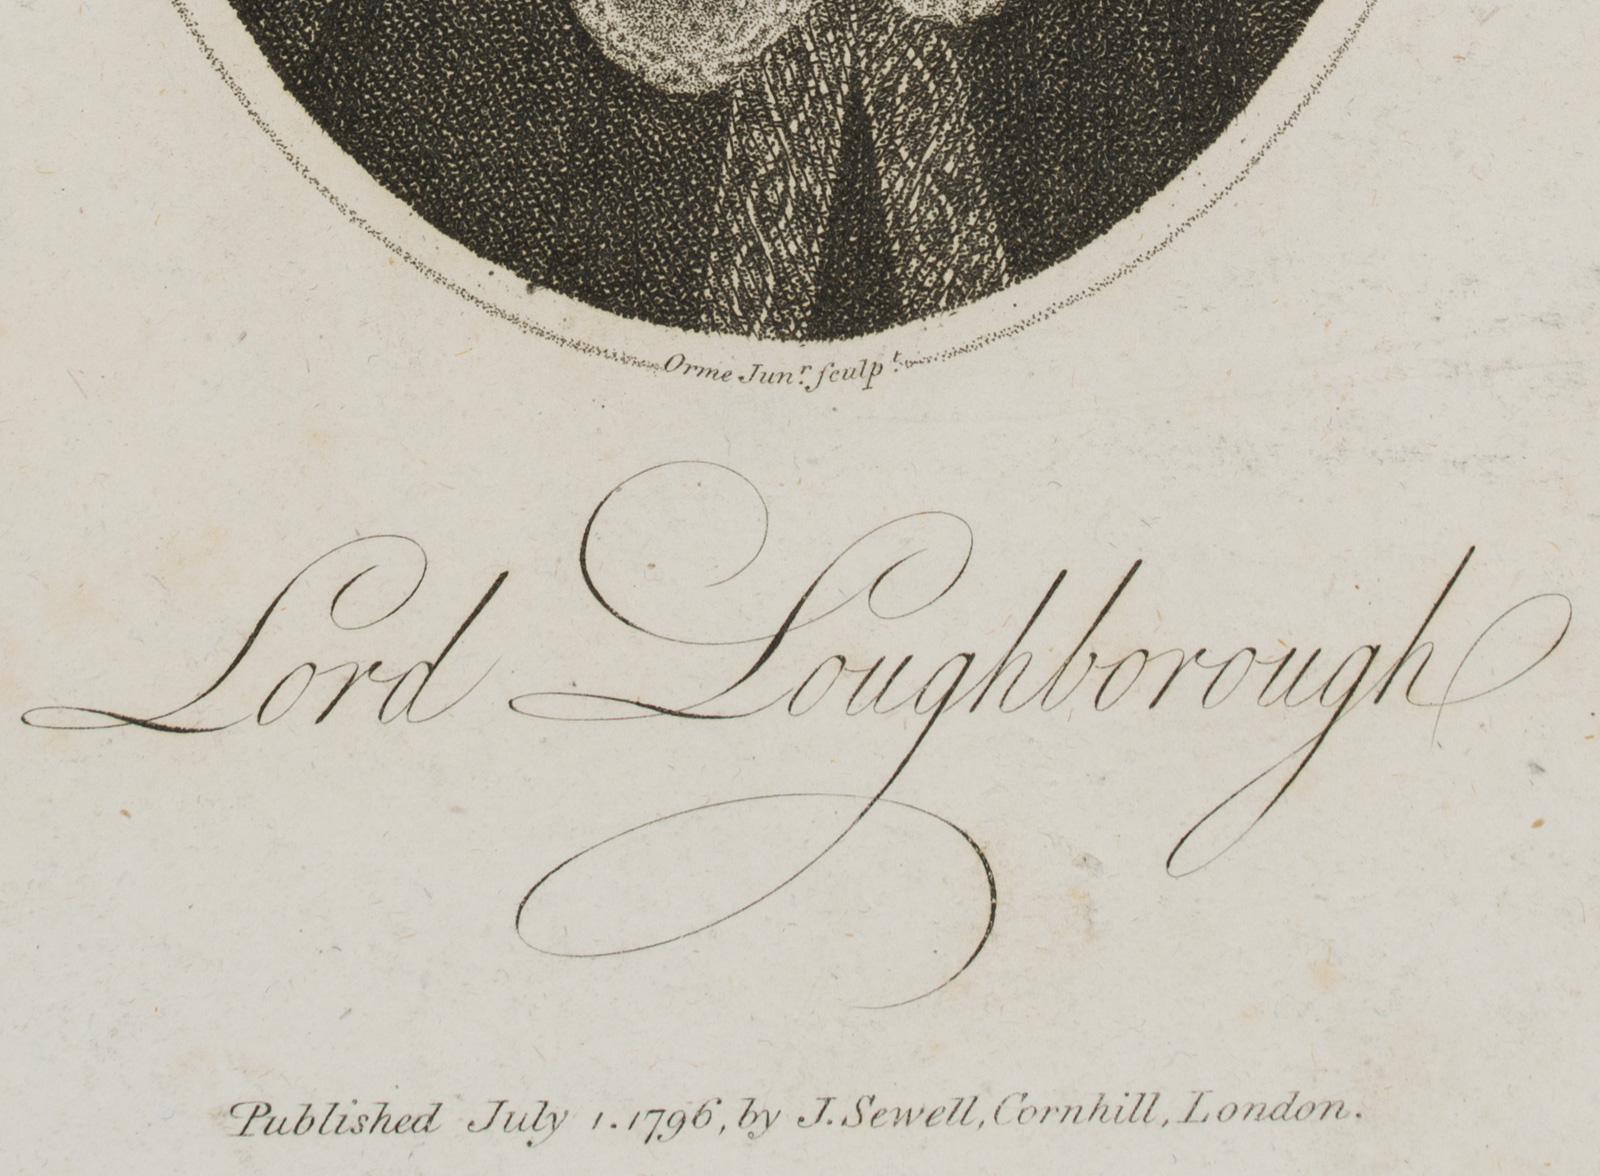 Orme Junr. sculpt.
Lord Loughborough
Published July 1. 1796, by J. Sewell, Cornhill, London.